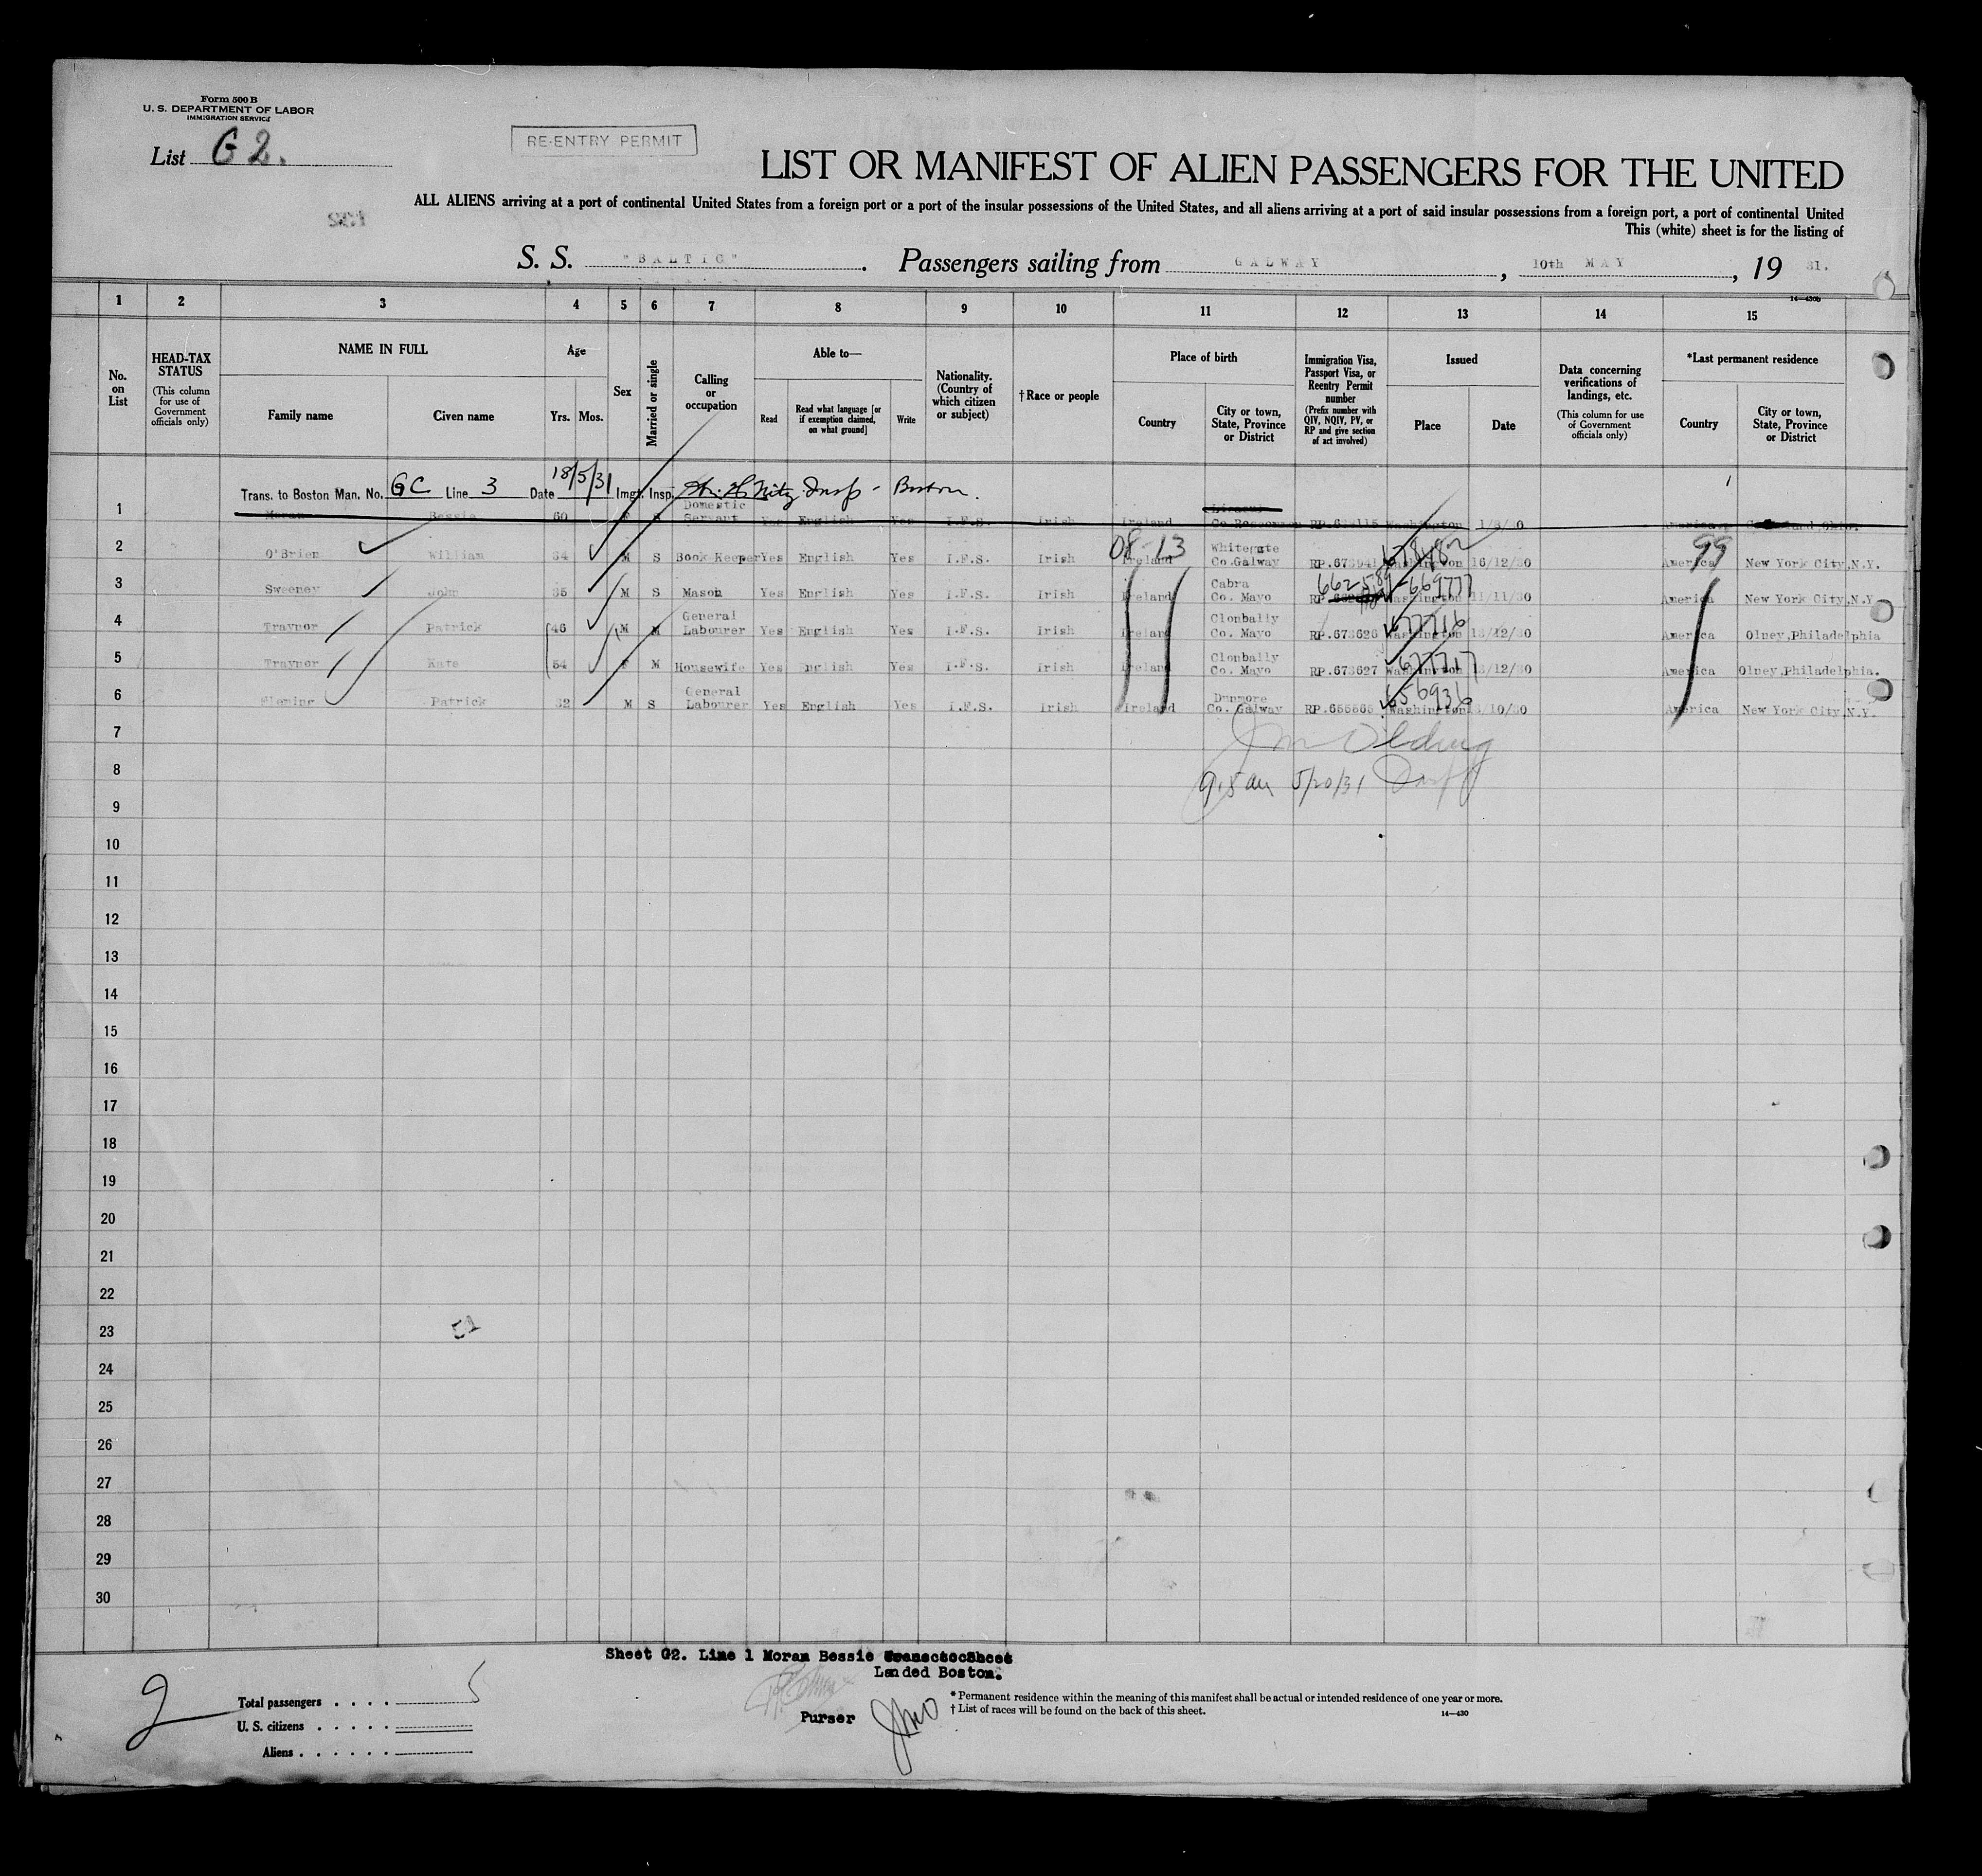 Form 500 B
U. S. DEPARTMENT OF LABOR
IMMIGRATION SERVICE
List G 2.
RE-ENTRY PERMIT
LIST OR MANIFEST OF ALIEN PASSENGERS FOR THE UNITED
ALL ALIENS arriving at a port of continental United States from a foreign port or a port of the insular possessions of the United States, and all aliens arriving at a port of said insular possessions from a foreign port, a port of continental United
This (white) sheet is for the listing of
S. S. "BALTIC". Passengers sailing from GALWAY, 10th MAY, 19 31.
14—430b
1 2 3 4 5 6 7 8 9 10 11 12 13 14 15
No. on List
HEAD-TAX STATUS (This column for use of Government officials only)
NAME IN FULL
Family name Given name
Age
Yrs. Mos.
Sex
Married or single
Calling or occupation
Able to—
Read Read what language [or if exemption claimed, on what ground] Write
Nationality. (Country of which citizen or subject)
†Race or people
Place of birth
Country City or town, State, Province or District
Immigration Visa, Passport Visa, or Reentry Permit number (Prefix number with QIV, NQIV, PV, or RP and give section of act involved)
Issued
Place Date
Data concerning verifications of landings, etc. (This column for use of Government officials only)
*Last permanent residence
Country City or town, State, Province or District
Trans. to Boston Man. No. GC Line 3 Date 18/5/31 Imgt. Insp. Insp - Boston.
1 Moran Bessie 60 F S Domestic Servant Yes English Yes I.F.S. Irish Ireland Washington America
2 O'Brien William 34 M S Book Keeper Yes English Yes I.F.S. Irish 08-13 Ireland Whitegate Co.Galway RP.673941 678482 Washington 16/12/30 99 America New York City,N.Y.
3 Sweeney John 35 M S Mason Yes English Yes I.F.S. Irish Ireland Cabra Co. Mayo 662589-669777 Washington 11/11/30 America New York City,N.Y.
4 Traynor Patrick 46 M M General Labourer Yes English Yes I.F.S. Irish Ireland Clonbally Co. Mayo RP.673626 677716 Washington 13/12/30 America Olney,Philadelphia
5 Traynor Kate 54 F M Housewife Yes English Yes I.F.S. Irish Ireland Clonbally Co. Mayo RP.673627 677717 Washington 13/12/30 America Olney,Philadelphia.
6 Fleming Patrick 32 M S General Labourer Yes English Yes I.F.S. Irish Ireland Dunmore Co. Galway RP.655565 656936 Washington 3/10/30 America New York City,N.Y.
7
8 5/20/31
9
10
11
12
13
14
15
16
17
18
19
20
21
22
23
24
25
26
27
28
29
30
Sheet G2. Line 1 Moran Bessie
Landed Boston.
Total passengers . . . . 5
U. S. citizens . . . . .
Aliens . . . . . .
Purser
* Permanent residence within the meaning of this manifest shall be actual or intended residence of one year or more.
† List of races will be found on the back of this sheet.
14—430